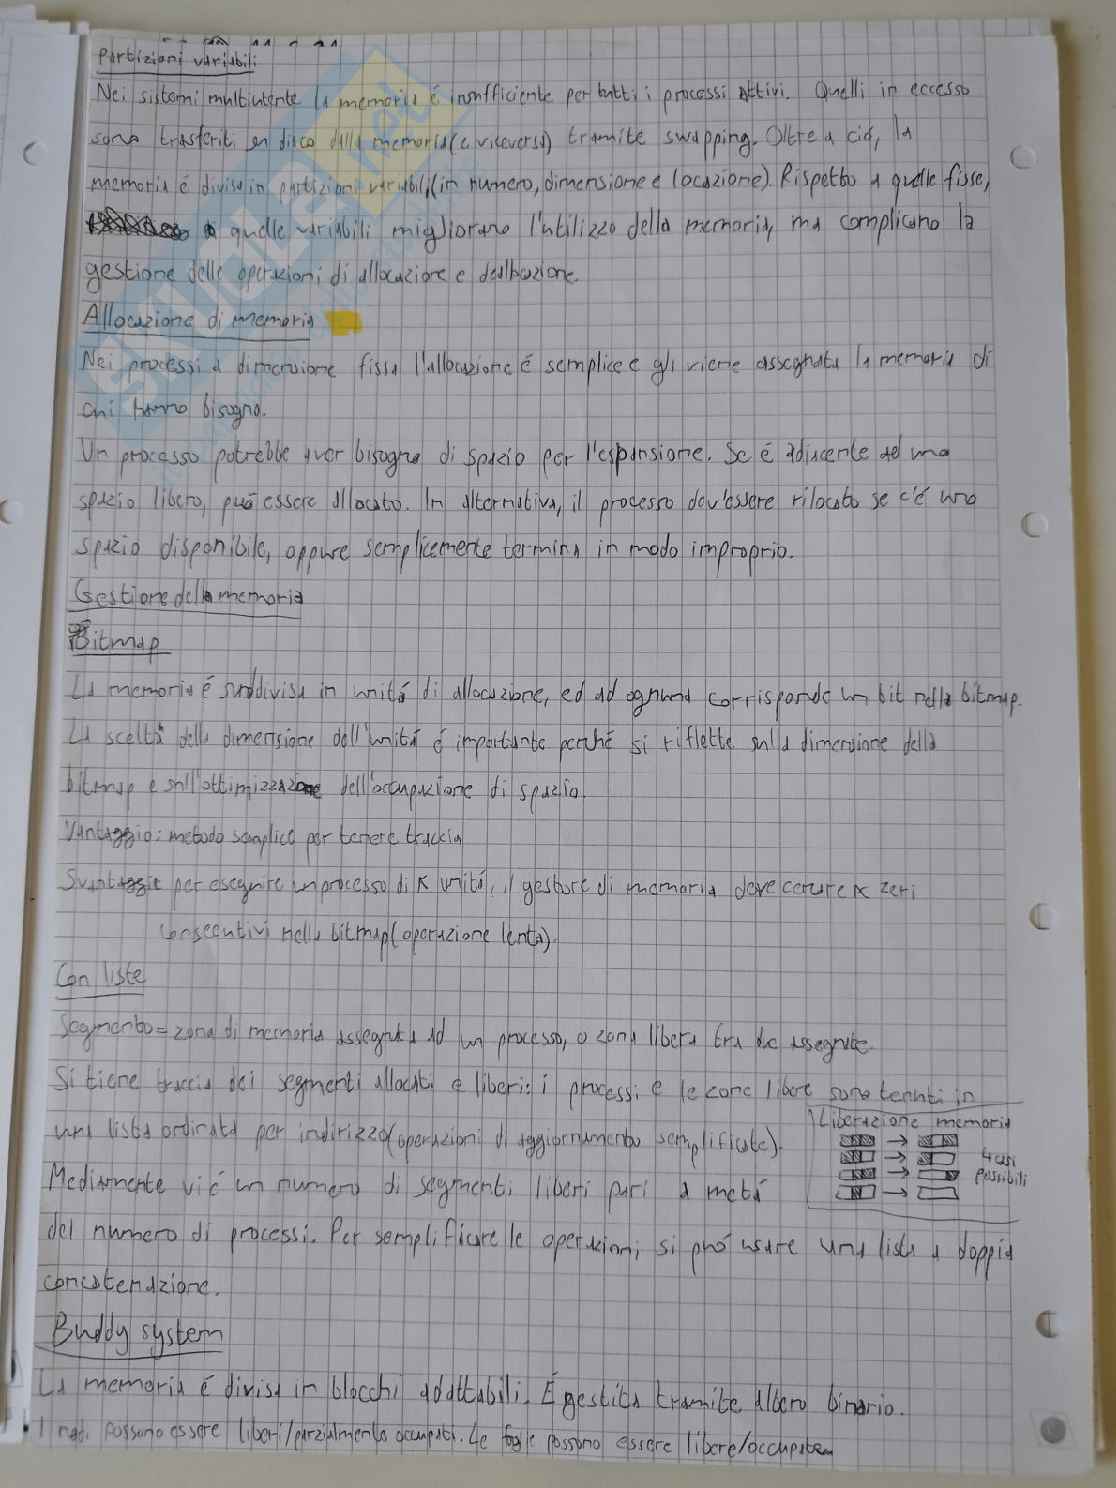 Partizioni variabili
Nei sistemi multiutente la memoria é insufficiente per tutti i processi attivi. Quelli in eccesso
sono trasferiti su disco dalla memoria (e viceversa) tramite swapping. Oltre a ció, la
memoria é divisa in partizioni variabili (in numero, dimensione e locazione). Rispetto a quelle fisse,
quelle variabili migliorano l'utilizzo della memoria, ma complicano la
gestione delle operazioni di allocazione e deallocazione.
Allocazione di memoria
Nei processi a dimensione fissa l'allocazione é semplice e gli viene assegnata la memoria di
cui hanno bisogno.
Un processo potrebbe aver bisogno di spazio per l'espansione. Se é adiacente ad uno
spazio libero, puó essere allocato. In alternativa, il processo dev'essere rilocato se c'é uno
spazio disponibile, oppure semplicemente termina in modo improprio.
Gestione della memoria
Bitmap
La memoria é suddivisa in unitá di allocazione, ed ad ognuna corrisponde un bit nella bitmap.
La scelta della dimensione dell'unitá é importante perché si riflette sulla dimensione della
bitmap e sull'ottimizzazione dell'occupazione di spazio.
Vantaggio: metodo semplice per tenere traccia
Svantaggio per eseguire un processo di K unitá, il gestore di memoria deve cercare K zeri
consecutivi nella bitmap (operazione lenta).
Con liste
Segmento = zona di memoria assegnata ad un processo, o zona libera tra due assegnate.
Si tiene traccia dei segmenti allocati e liberi: i processi e le zone libere sono tenuti in
una lista ordinata per indirizzo (operazioni di aggiornamento semplificate).
Liberazione memoria
4 casi
possibili
Mediamente vi é un numero di segmenti liberi pari a metá
del numero di processi. Per semplificare le operazioni, si puó usare una lista a doppia
concatenazione.
Buddy system
La memoria é divisa in blocchi adattabili. É gestita tramite albero binario.
I nodi possono essere liberi/parzialmente occupati. Le foglie possono essere libere/occupate
SKUOLA.net